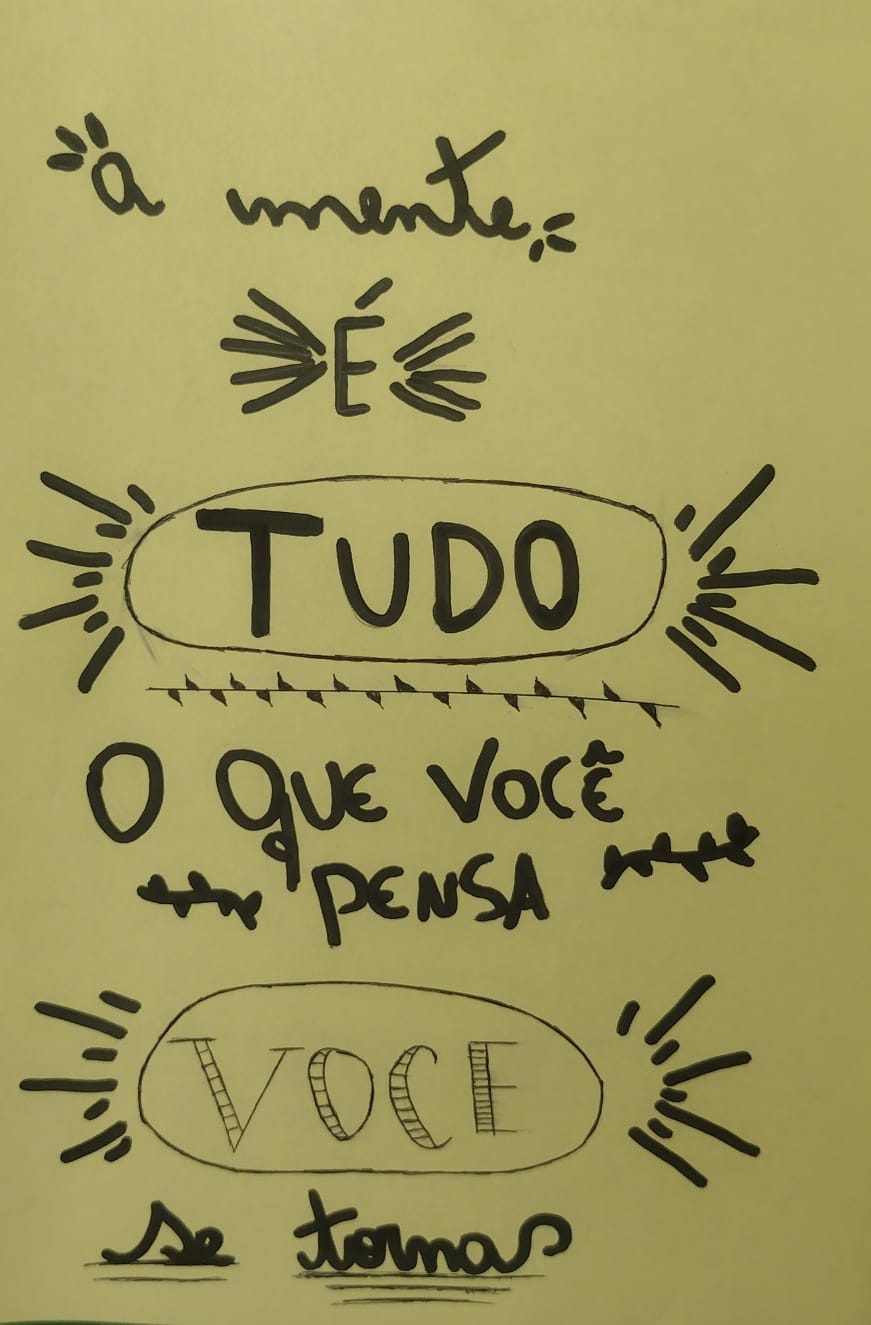 a mente
É
TUDO
O QUE VOCÊ
PENSA
VOCE
se tornas